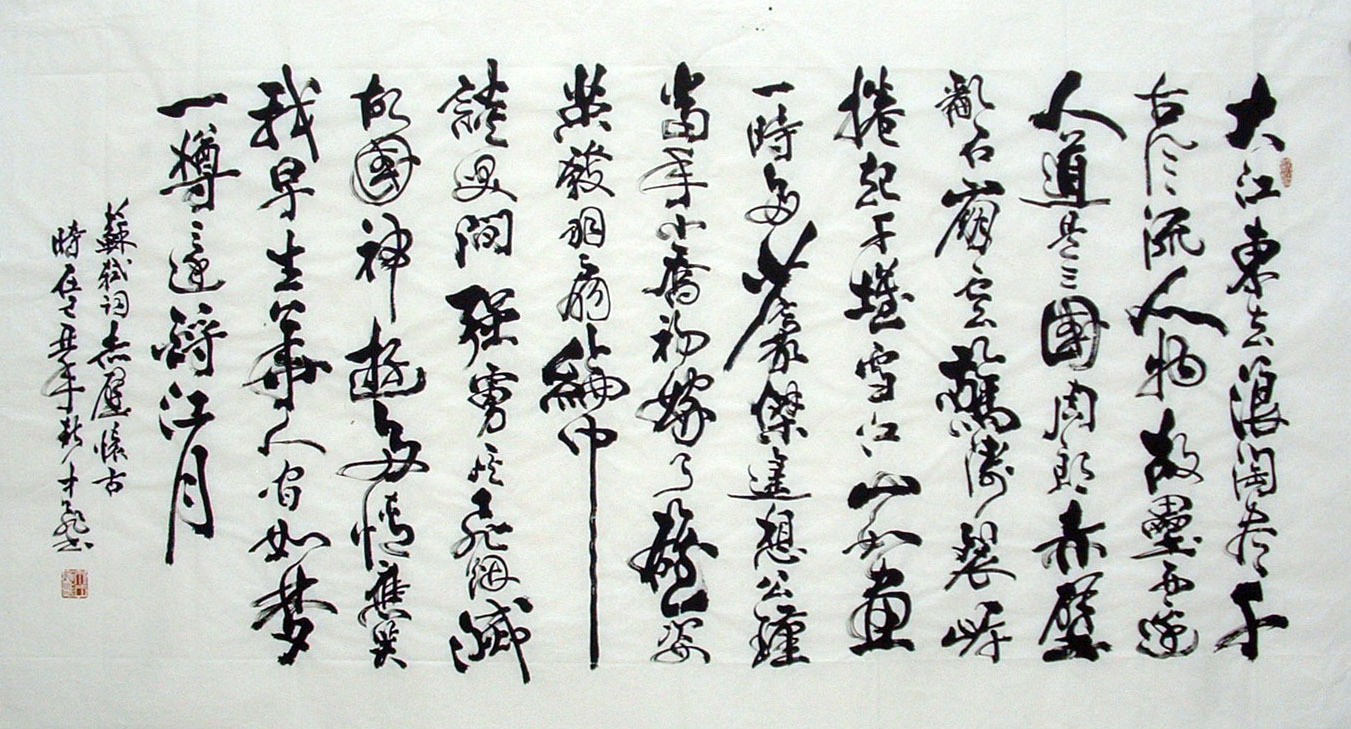 大江東去浪淘尽千
古風流人物故壘西邊
人道是三國周郎赤壁
亂石崩雲驚濤裂岸
捲起千堆雪江山如畫
一時多少豪傑遙想公瑾
當年小喬初嫁了雄姿
英發羽扇綸巾
談笑間强虜灰飛烟滅
故國神遊多情應笑
我早生華人间如梦
一樽還酹江月
蘇軾詞赤壁懷古
時在己丑年